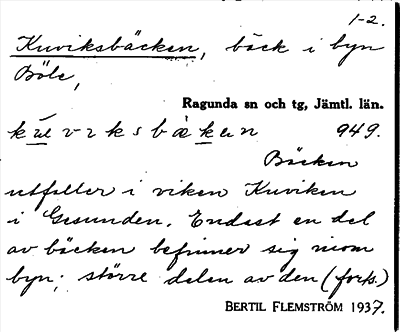 1-2.
Kuviksbäcken, bäck i byn
Böle,
Ragunda sn och tg, Jämtl. län.
949.
Bäcken
utfaller i viken Kuviken
i Gesunden. Endast en del
av bäcken befinner sig inom
byn; större delen av den (forts.)
BERTIL FLEMSTRÖM 1937.